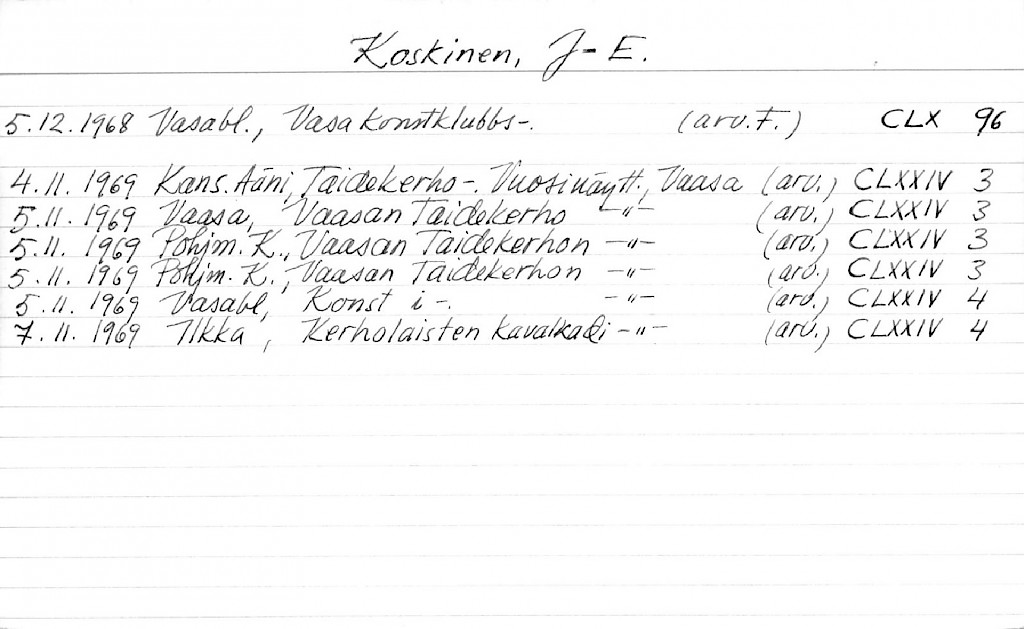 Koskinen, J-E.
5.12.1968 Vasabl., Vasa Konstklubbs-. (arv.F.) CLX 96
4.11. 1969 Kans. Ääni, Taidekerho-. Vuosinäytt., Vaasa (arv.) CLXXIV 3
5.11. 1969 Vaasa, Vaasan Taidekerho -"- (arv.) CLXXIV 3
5.11. 1969 Pohjm. K., Vaasan Taidekerhon -"- (arv.) CLXXIV 3
5.11. 1969 Pohjm. K., Vaasan Taidekerhon -"- (arv.) CLXXIV 3
5.11. 1969 Vasabl, Konst i -. -"- (arv.) CLXXIV 4
7.11. 1969 Ilkka, Kerholaisten kavalkadi -"- (arv.) CLXXIV 4